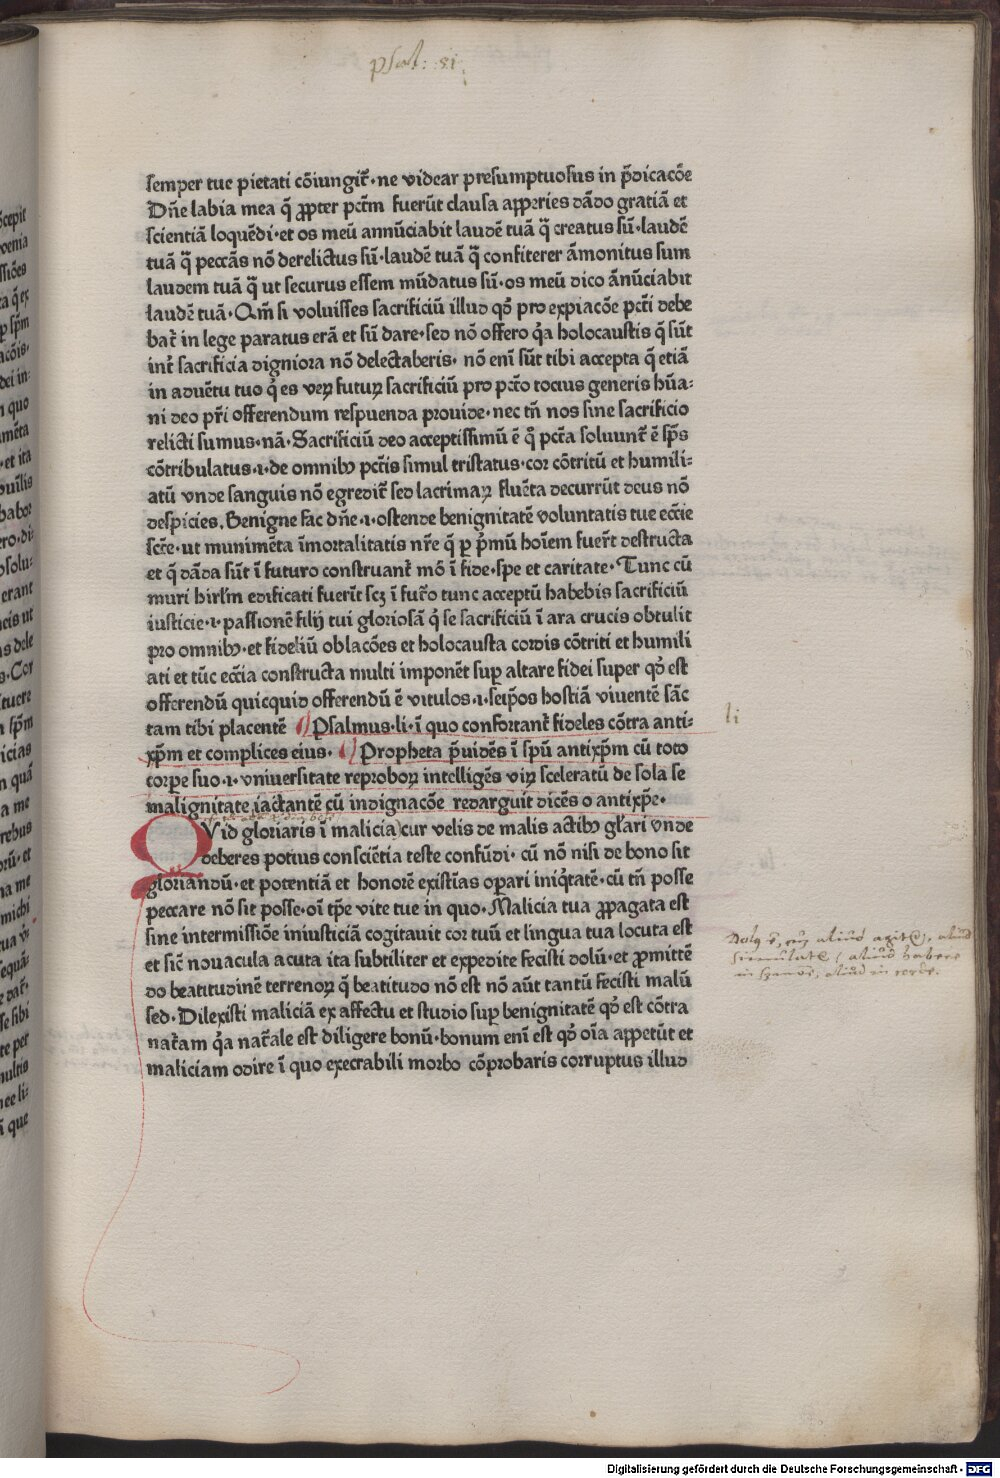 psal: 51
semper tue pietati cōiungit᷑·ne videar presumptuosus in p̄dicacōe
Dn̄e labia mea q̄ ꝓpter pctm̄ fuerūt clausa aꝑꝑeries dādo gratiā et
scientiā loquēdi·et os meū annūciabit laudē tuā q̄ creatus sū·laudē
tuā q̄ peccās nō derelictus sū·laudē tuā q̄ confiterer āmonitus sum
laudem tuā q̄ ut securus essem mūdatus sū·os meū dico ānūciabit
laudē tuā·Qm̄ si voluisses sacrificiū illud qđ pro expiacōe pcti debe
bat᷑ in lege paratus erā et sū dare·sed nō offero q̇a holocaustis q̄ sūt
int᷑ sacrificia digniora nō delectaberis·nō enī sūt tibi accepta q̄ etiā
in aduētu tuo q̇ es veꝝ futuꝝ sacrificiū pro pcto tocius generis hūa:
ni deo pr̄i offerendum respuenda prouide·nec tn̄ nos sine sacrificio
relicti sumus·nā·Sacrificiū deo acceptissimū ē q̇ pcta soluunt᷑ ē sp̄s
cōtribulatus·i·de omnibꝫ pctis simul tristatus·cor cōtritū et humili:
atū vnde sanguis nō egredit᷑ sed lacrimaꝝ fluēta decurrūt deus nō
despicies. Benigne fac dn̄e·i·ostende benignitatē voluntatis tue ecc̄ie
scr̄e·ut munimēta īmortalitatis nr̄e q̄ ꝑ p̄mū hoīem fuer̄t destructa
et q̄ dāda sūt ī futuro construant᷑ mō ī fide·spe et caritate·Tunc cū
muri hirlm̄ edificati fuerīt scꝫ ī fut᷑o tunc acceptū habebis sacrificiū
iusticie·i·passionē filij tui gloriosā q̇ se sacrificiū ī ara crucis obtulit
pro omnibꝫ·et fideliū oblacōes et holocausta cordis cōtriti et humili
ati et tūc ecc̄ia constructa multi imponēt suꝑ altare fidei super qđ est
offerendū quicquid offerendū ē vitulos·i·seip̄os hostiā viuentē sāc
tam tibi placentē Psalmus·li·ī quo confortant᷑ fideles cōtra anti:
xp̄m et complices eius· Propheta p̄uidēs ī spū antixp̄m cū toto
corꝑe suo·i·vniuersitate reproboꝝ intelligēs viꝝ sceleratū de sola se
malignitate iactantē cū indignacōe redarguit dicēs o antixp̄e·
QVid gloriaris ī malicia cur velis de malis actibꝫ gl̄ari vnde
deberes potius consciētia teste confūdi·cū nō nisi de bono sit
gloriandū·et potentiā et honorē existīas oꝑari iniq̇tatē·cū tn̄ posse
peccare nō sit posse·oī tp̄e vite tue in quo·Malicia tua ꝓpagata est
sine intermissiōe iniusticiā cogitauit cor tuū et lingua tua locuta est
et sic̄ nouacula acuta ita subtiliter et expedite fecisti dolū·et ꝓmittē
do beatitudinē terrenoꝝ q̄ beatitudo nō est nō aūt tantū fecisti malū
sed·Dilexisti maliciā ex affectu et studio suꝑ benignitatē qđ est cōtra
nat᷑am q̇a nat᷑ale est diligere bonū·bonum enī est qđ oīa aꝑꝑetūt et
maliciam odire ī quo execrabili morbo cōprobaris corruptus illud
li
Dolꝰ ē, cū aliud agit&, aliud
simulat& / aliud habere
in , aliud in corde.
Digitalisierung gefördert durch die Deutsche Forschungsgemeinschaft - DFG